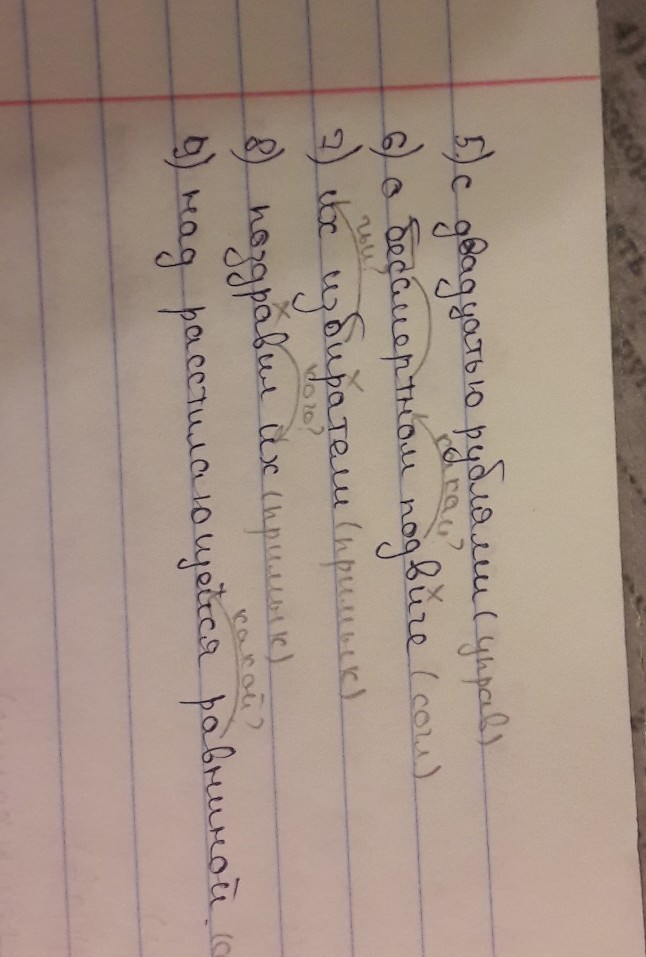 5) с двадцатью рублями (управ)
какой?
6) о бессмертном подвиге (согл)
чьи?
7) их избиратели (примык)
кого?
8) поздравил их (примык)
какой?
9) над расстилающейся равниной.